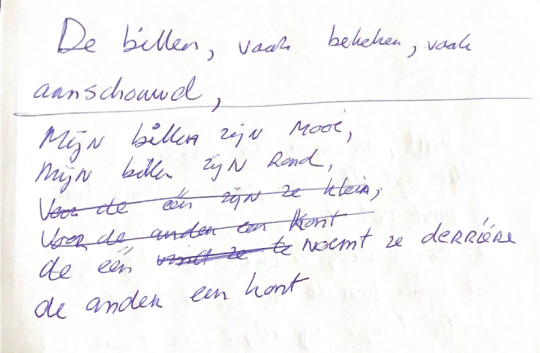 De billen, vaak bekeken, vaak
aanschouwd,
Mijn billen zijn Mooi,
Mijn billen zijn Rond,
Voor de één zijn ze klein,
Voor de anden een Kont
de één vindt ze te Noemt ze derrière
de anden een kont